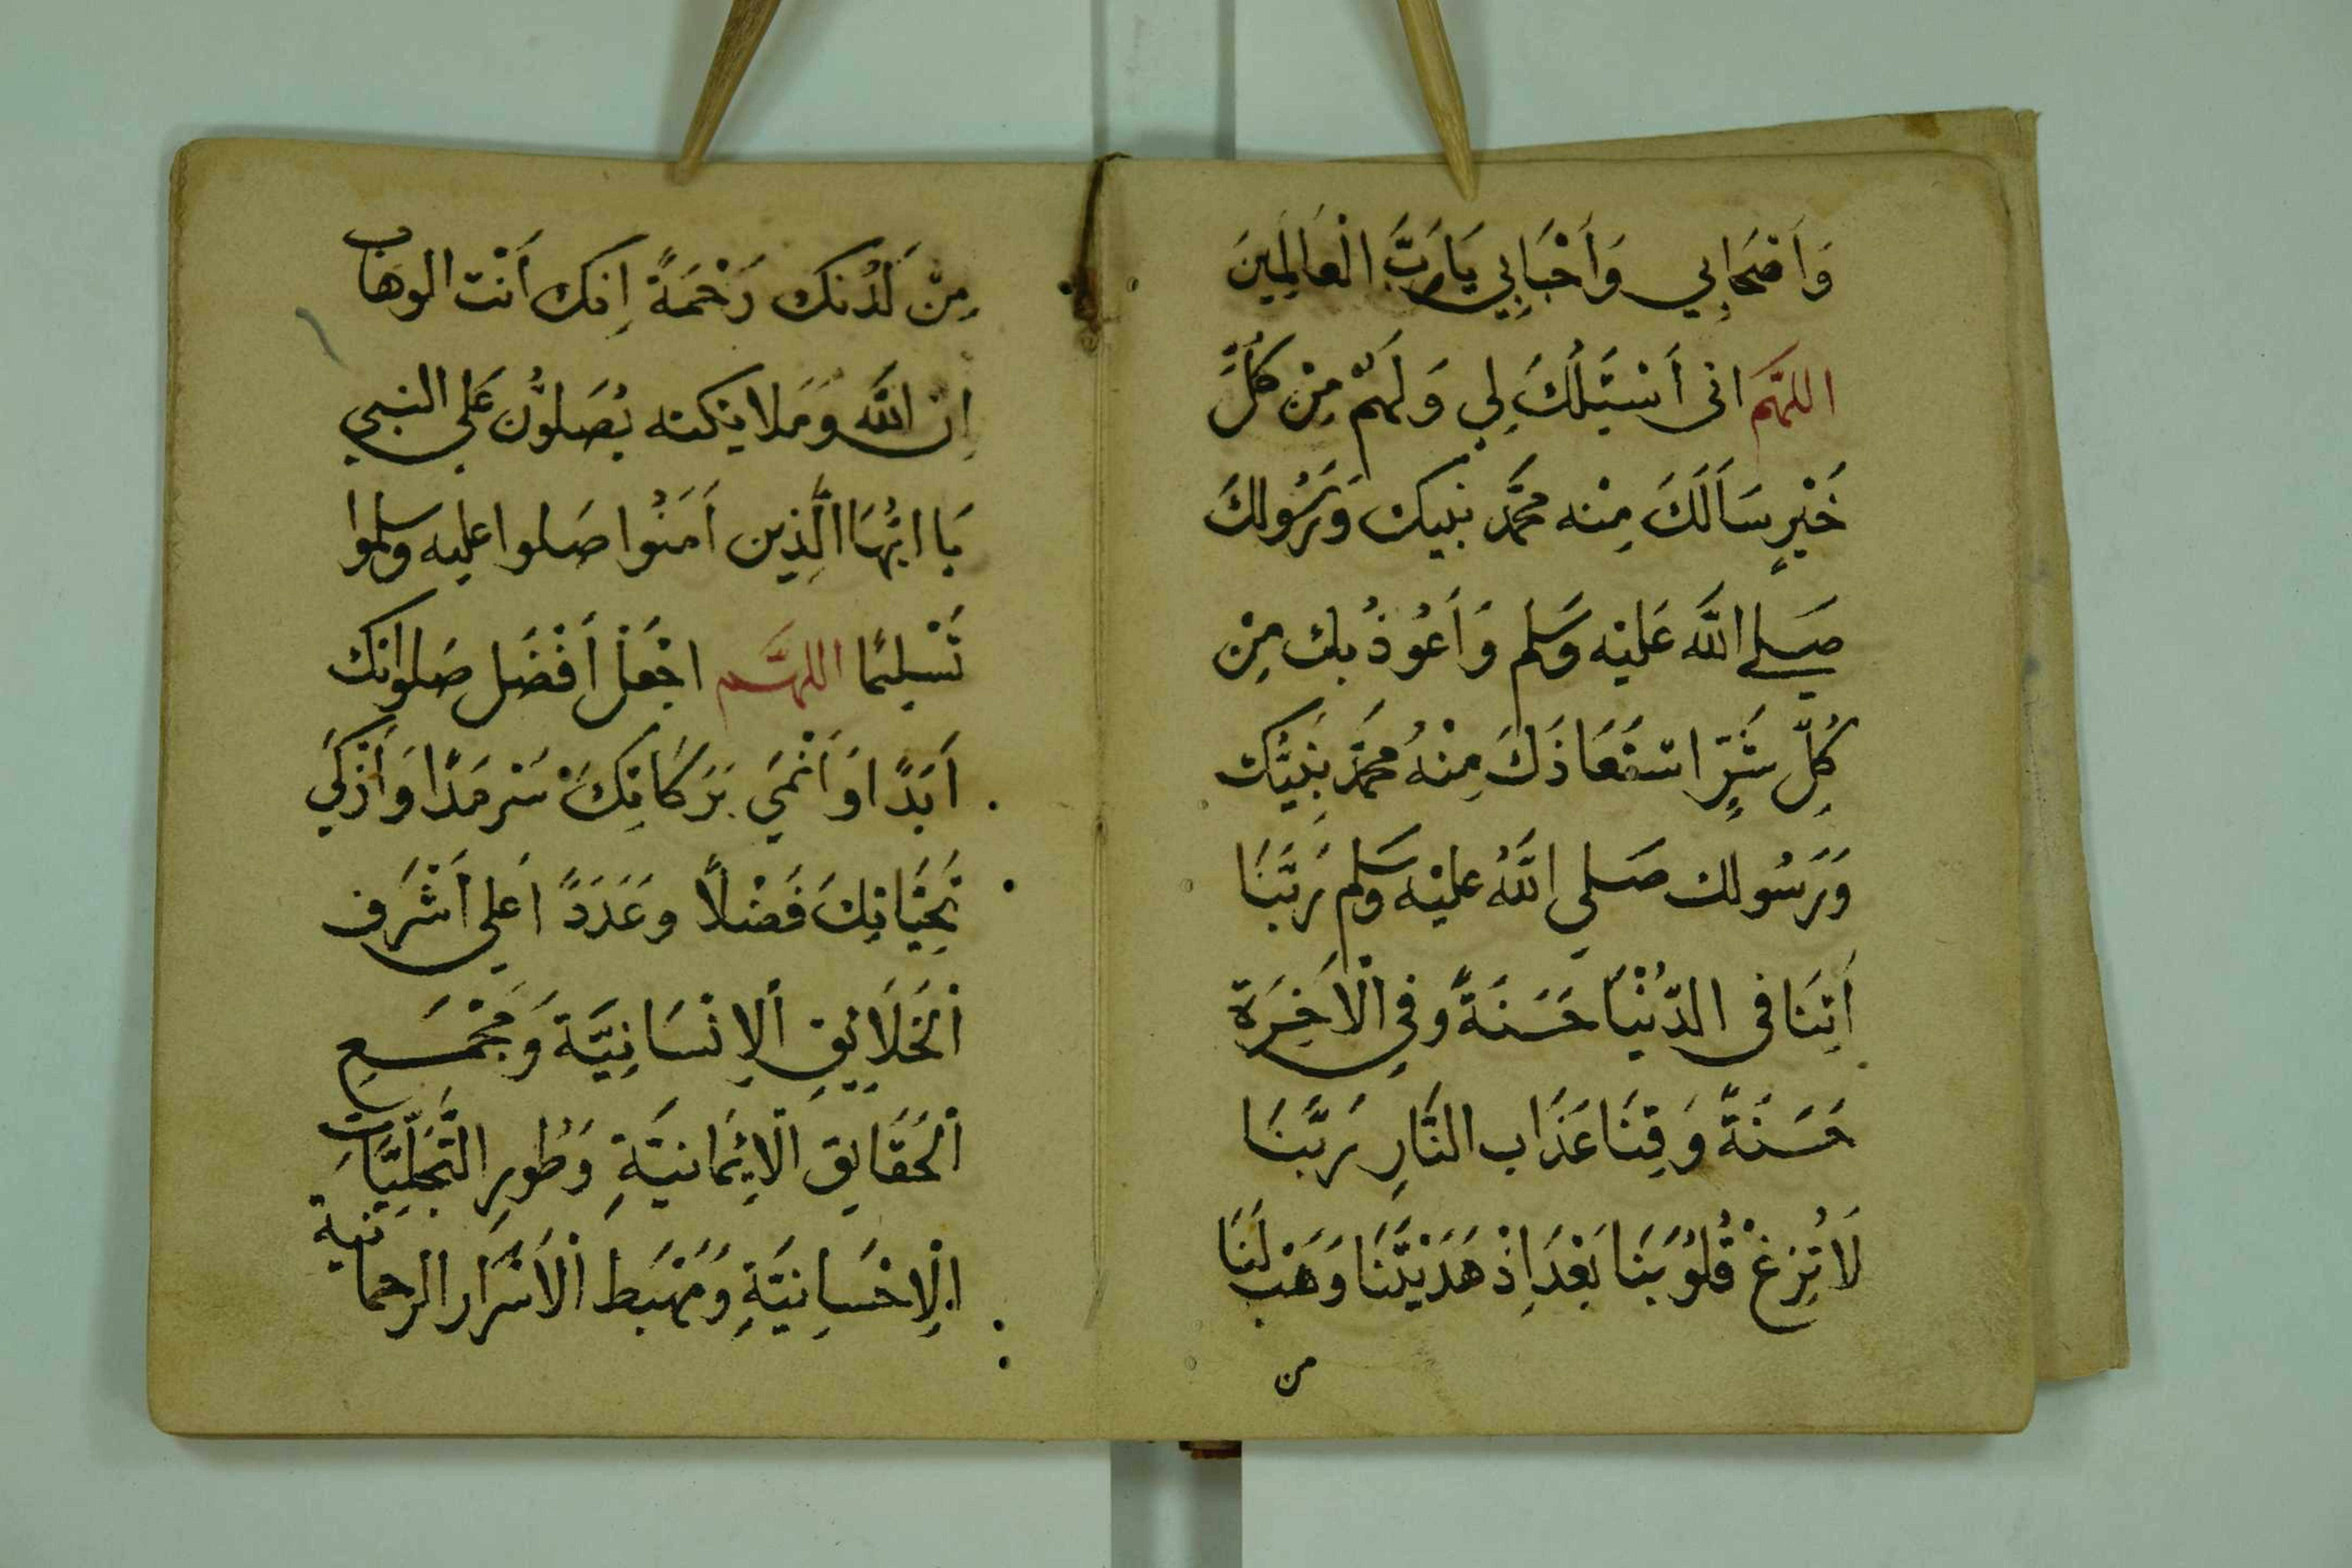 وَأَصْحَابِي وَأَحْبَابِي يَا رَبَّ الْعَالَمِينَ
اللهُمَّ انى أَسْئَلُكَ لِي وَلَهُمْ مِنْ كُلِّ
خَيْرٍ سَأَلَكَ مِنْه مُحَمَّد نبيك وَرَسُولكَ
صَلى اللَّه عَليْه وَسَلم وَأَعُوذُ بك مِنْ
كُلِّ شَرٍّ اسْتَعَاذَكَ مِنْهُ مُحَمَّد نَبِيُّك
وَرَسُولك صَلي اللَّهُ عليْه وَسَلم رَبَّنَا
اَتِنَا في الدُّنْيَا حَسَنَةً وَفِي الْاَخِرَة
حَسَنَةً وَقِنَا عَذَاب النَّارِ رَبَّنَا
لَا تُزِغْ قُلُوبَنا بَعْدَ اِذْ هَدَيْتَنَا وَهَبْ لَنَا
من
مِنْ لَدُنك رَحْمَةً اِنك أَنْت الوهاب
اِن اللَّه وَمَلايكته يُصَلوُّن عَلَي النبي
يَا ايُّهَا الَّذِين اَمَنُوا صَلوا عليه وسلموا
تَسْليمًا اللهُمَّ اجْعَلْ أَفْضَل صَلوَاتك
اَبَدًا وَ أَنْمَي بَرَكَاتِكَ سَرْمَدًا وَأَزْكَي
تَحِيَّاتِكَ فَضْلاً وعَدَدً اعَلى أَشْرَف
اْلخَلَايِقِ اْلاِنْسَانِيَّة وَمَجْمَعِ
اْلحَقَايِق الْاِيْمَانيَّةِ وَطُورِ التَّجَلِّيَّاتِ
الْاِحْسَانِيَّةِ وَمَهْبَطِ الْاَسْرَار الرحمانية